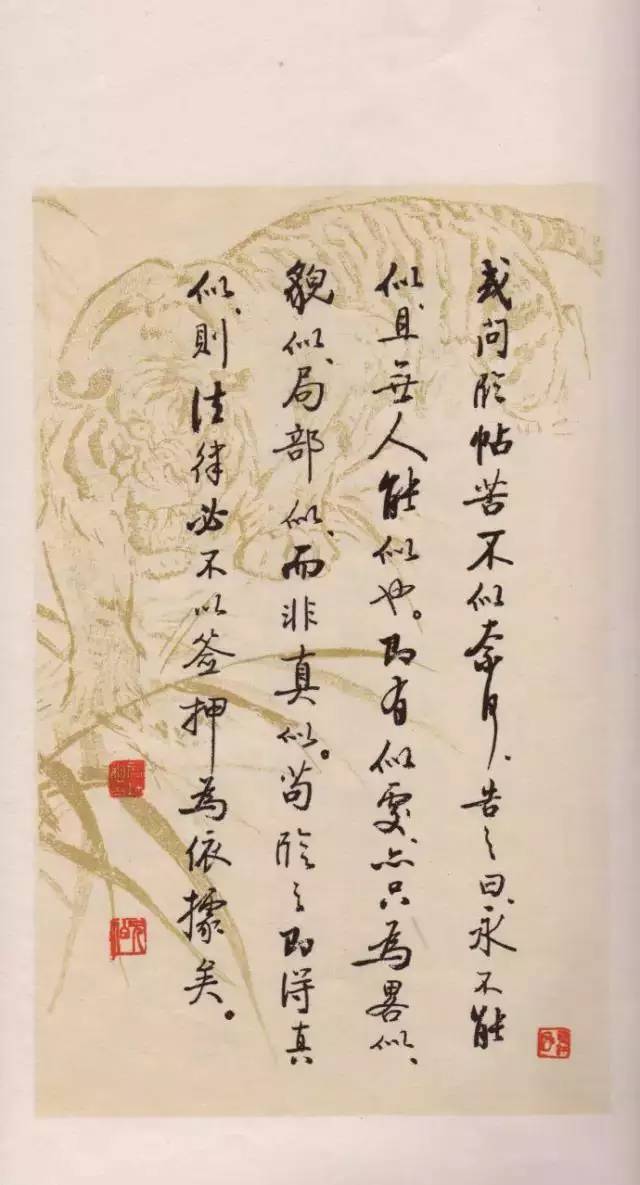 或问臨帖苦不似奈何、告之曰、永不能
似、且無人能似也。即有似處、亦只為畧似、
貌似、局部似、而非真似。苟臨之即得真
似、則法律必不以簽押為依據矣。